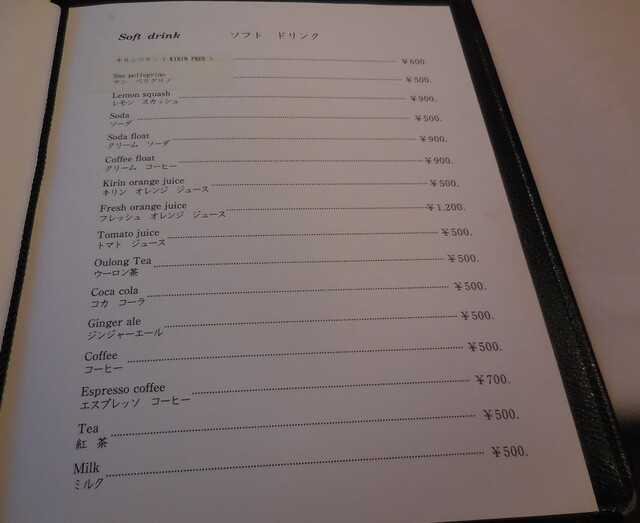 Soft drink ソフト ドリンク
キリンフリー ( KIRIN FREE ) ¥600.
San pellegrino ¥500.
サン ペリグリノ
Lemon squash ¥900.
レモン スカッシュ
Soda ¥500.
ソーダ
Soda float ¥900.
クリーム ソーダ
Coffee float ¥900.
クリーム コーヒー
Kirin orange juice ¥500.
キリン オレンジ ジュース
Fresh orange juice ¥1,200.
フレッシュ オレンジ ジュース
Tomato juice ¥500.
トマト ジュース
Oulong Tea ¥500.
ウーロン茶
Coca cola ¥500.
コカ コーラ
Ginger ale ¥500.
ジンジャーエール
Coffee ¥500.
コーヒー
Espresso coffee ¥700.
エスプレッソ コーヒー
Tea ¥500.
紅 茶
Milk ¥500.
ミルク